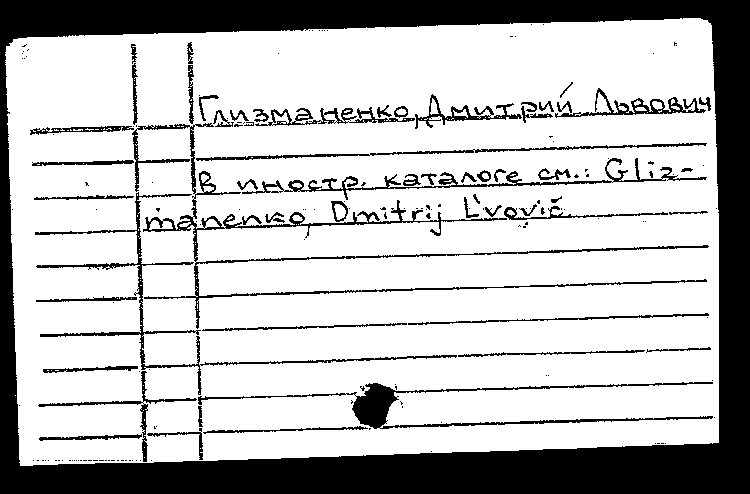 Глизманенко, Дмитрий Львович
В иностр. каталоге см.: Gliz-
manenko, Dmitrij L'vovič.